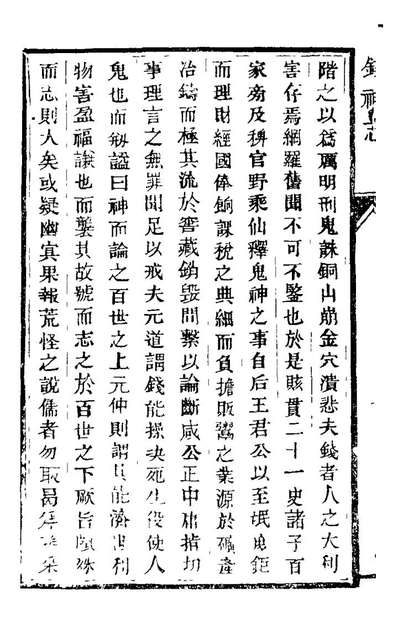 錢神志
階之以爲厲明刑鬼誅銅山崩金穴潰悲夫錢者人之大利
害存焉網羅舊聞不可不鑒也於是賅貫二十一史諸子百
家旁及稗官野乘仙釋鬼神之事自后王君公以至氓庶鉅
而理財經國俸餉課稅之典細而負擔販鬻之業源於礦產
冶鑄而極其流於窖藏銷毀間繫以論斷咸公正中出指切
事理言之無罪聞足以戒夫元道謂錢能操決死生役使人
鬼也而勑謚曰神而論之百世之上元仲則謂其能濟世利
物害盈福謙也而襲其故號而志之於百世之下厥旨雖殊
而志則大矣或疑幽冥果報荒怪之說儒者勿取曷